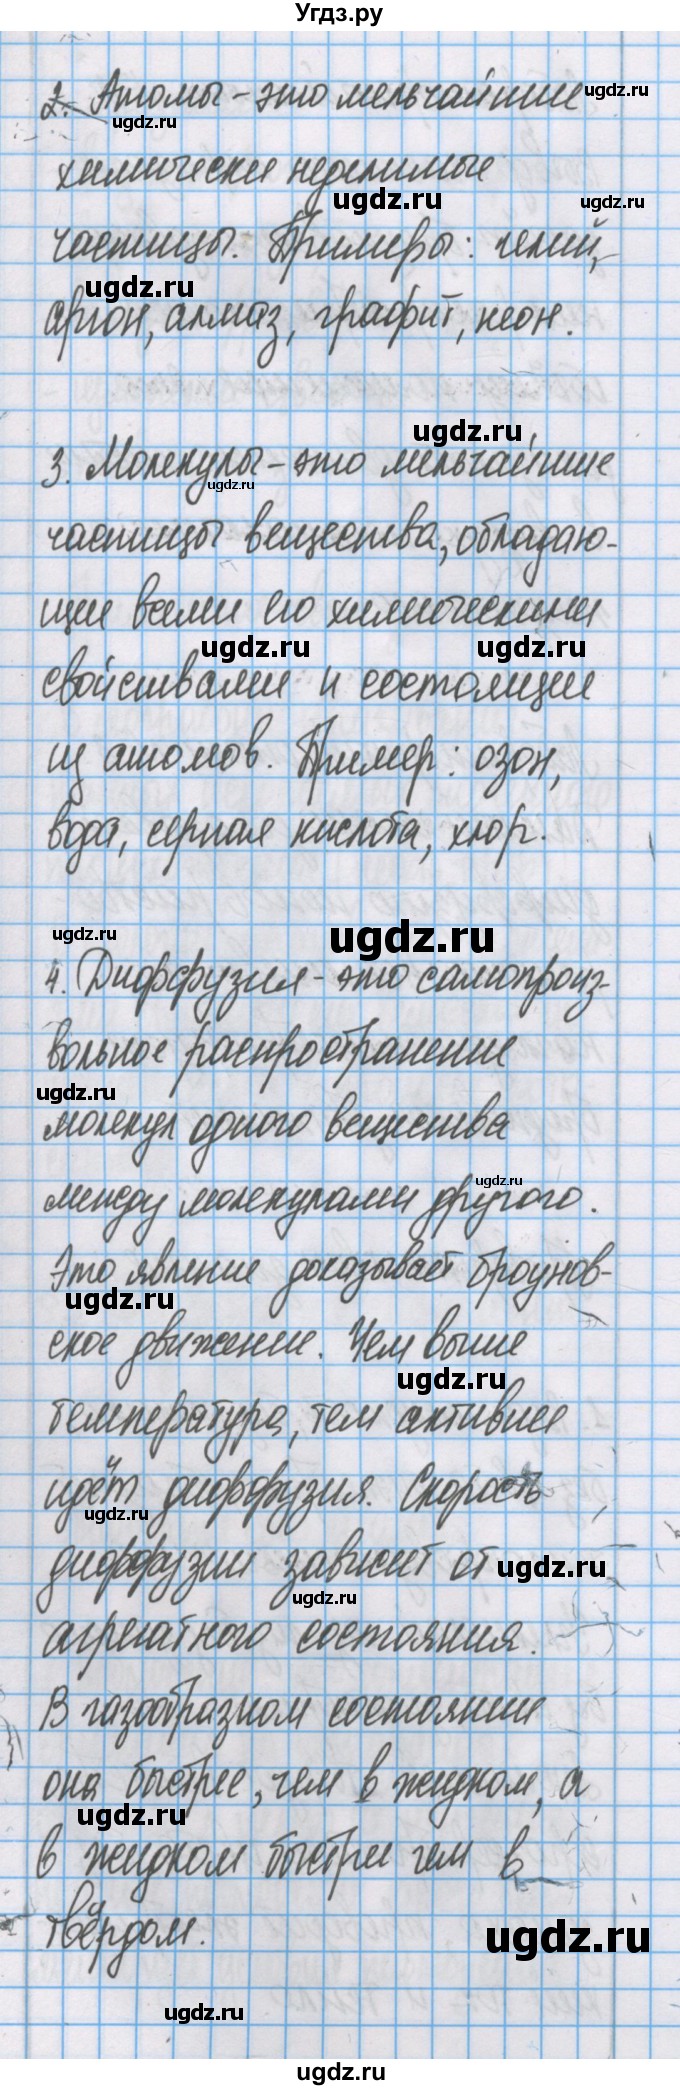 Угдз.ру
2. Атомы - это мельчайшие
химически неделимые
частицы. Примеры: гелий,
аргон, алмаз, графит, неон.
3. Молекулы - это мельчайшие
частицы вещества, обладаю-
щие всеми его химическими
свойствами и состоящие
из атомов. Пример: озон,
вода, серная кислота, хлор.
4. Диффузия - это самопроиз-
вольное распространение
молекул одного вещества
между молекулами другого.
Это явление доказывает броунов-
ское движение. Чем выше
температура, тем активнее
идёт диффузия. Скорость
диффузии зависит от
агрегатного состояния.
В газообразном состоянии
она быстрее, чем в жидком, а
в жидком быстрее чем в
твёрдом.
ugdz.ru